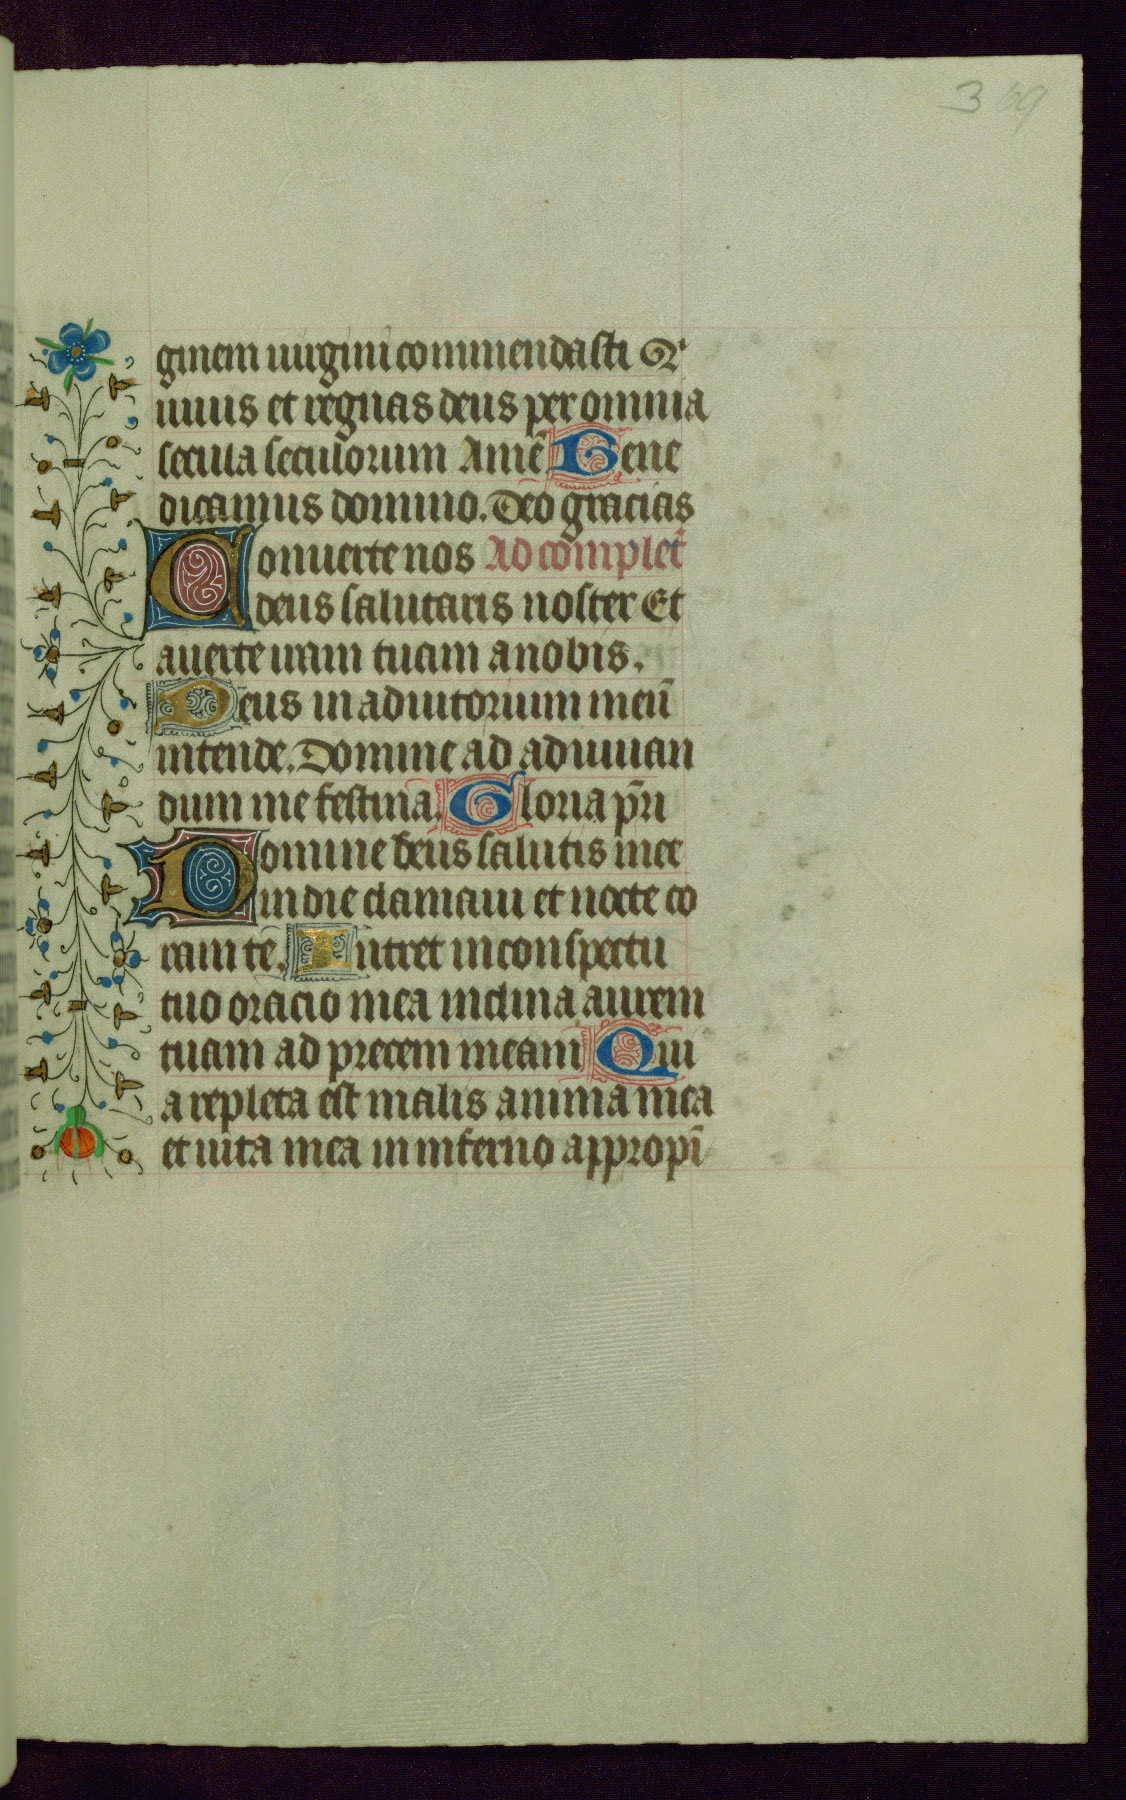 369
ginem uirgini commendasti Q'
uiuis et regnas deus per omnia
secula seculorum Amē Bene
dicamus domino. Deo gracias
Conuerte nos Ad complet'
deus salutaris noster Et
auerte iram tuam anobis.
Deus in adiutorium meū
intende. Domine ad adiuuan
dum me festina. Gloria p̄ri
Domine deus salutis mee
in die clamaui et nocte co
ram te. Intret in conspectu
tuo oracio mea inclina aurem
tuam ad precem meam Qui
a repleta est malis anima mea
et uita mea in inferno appropī